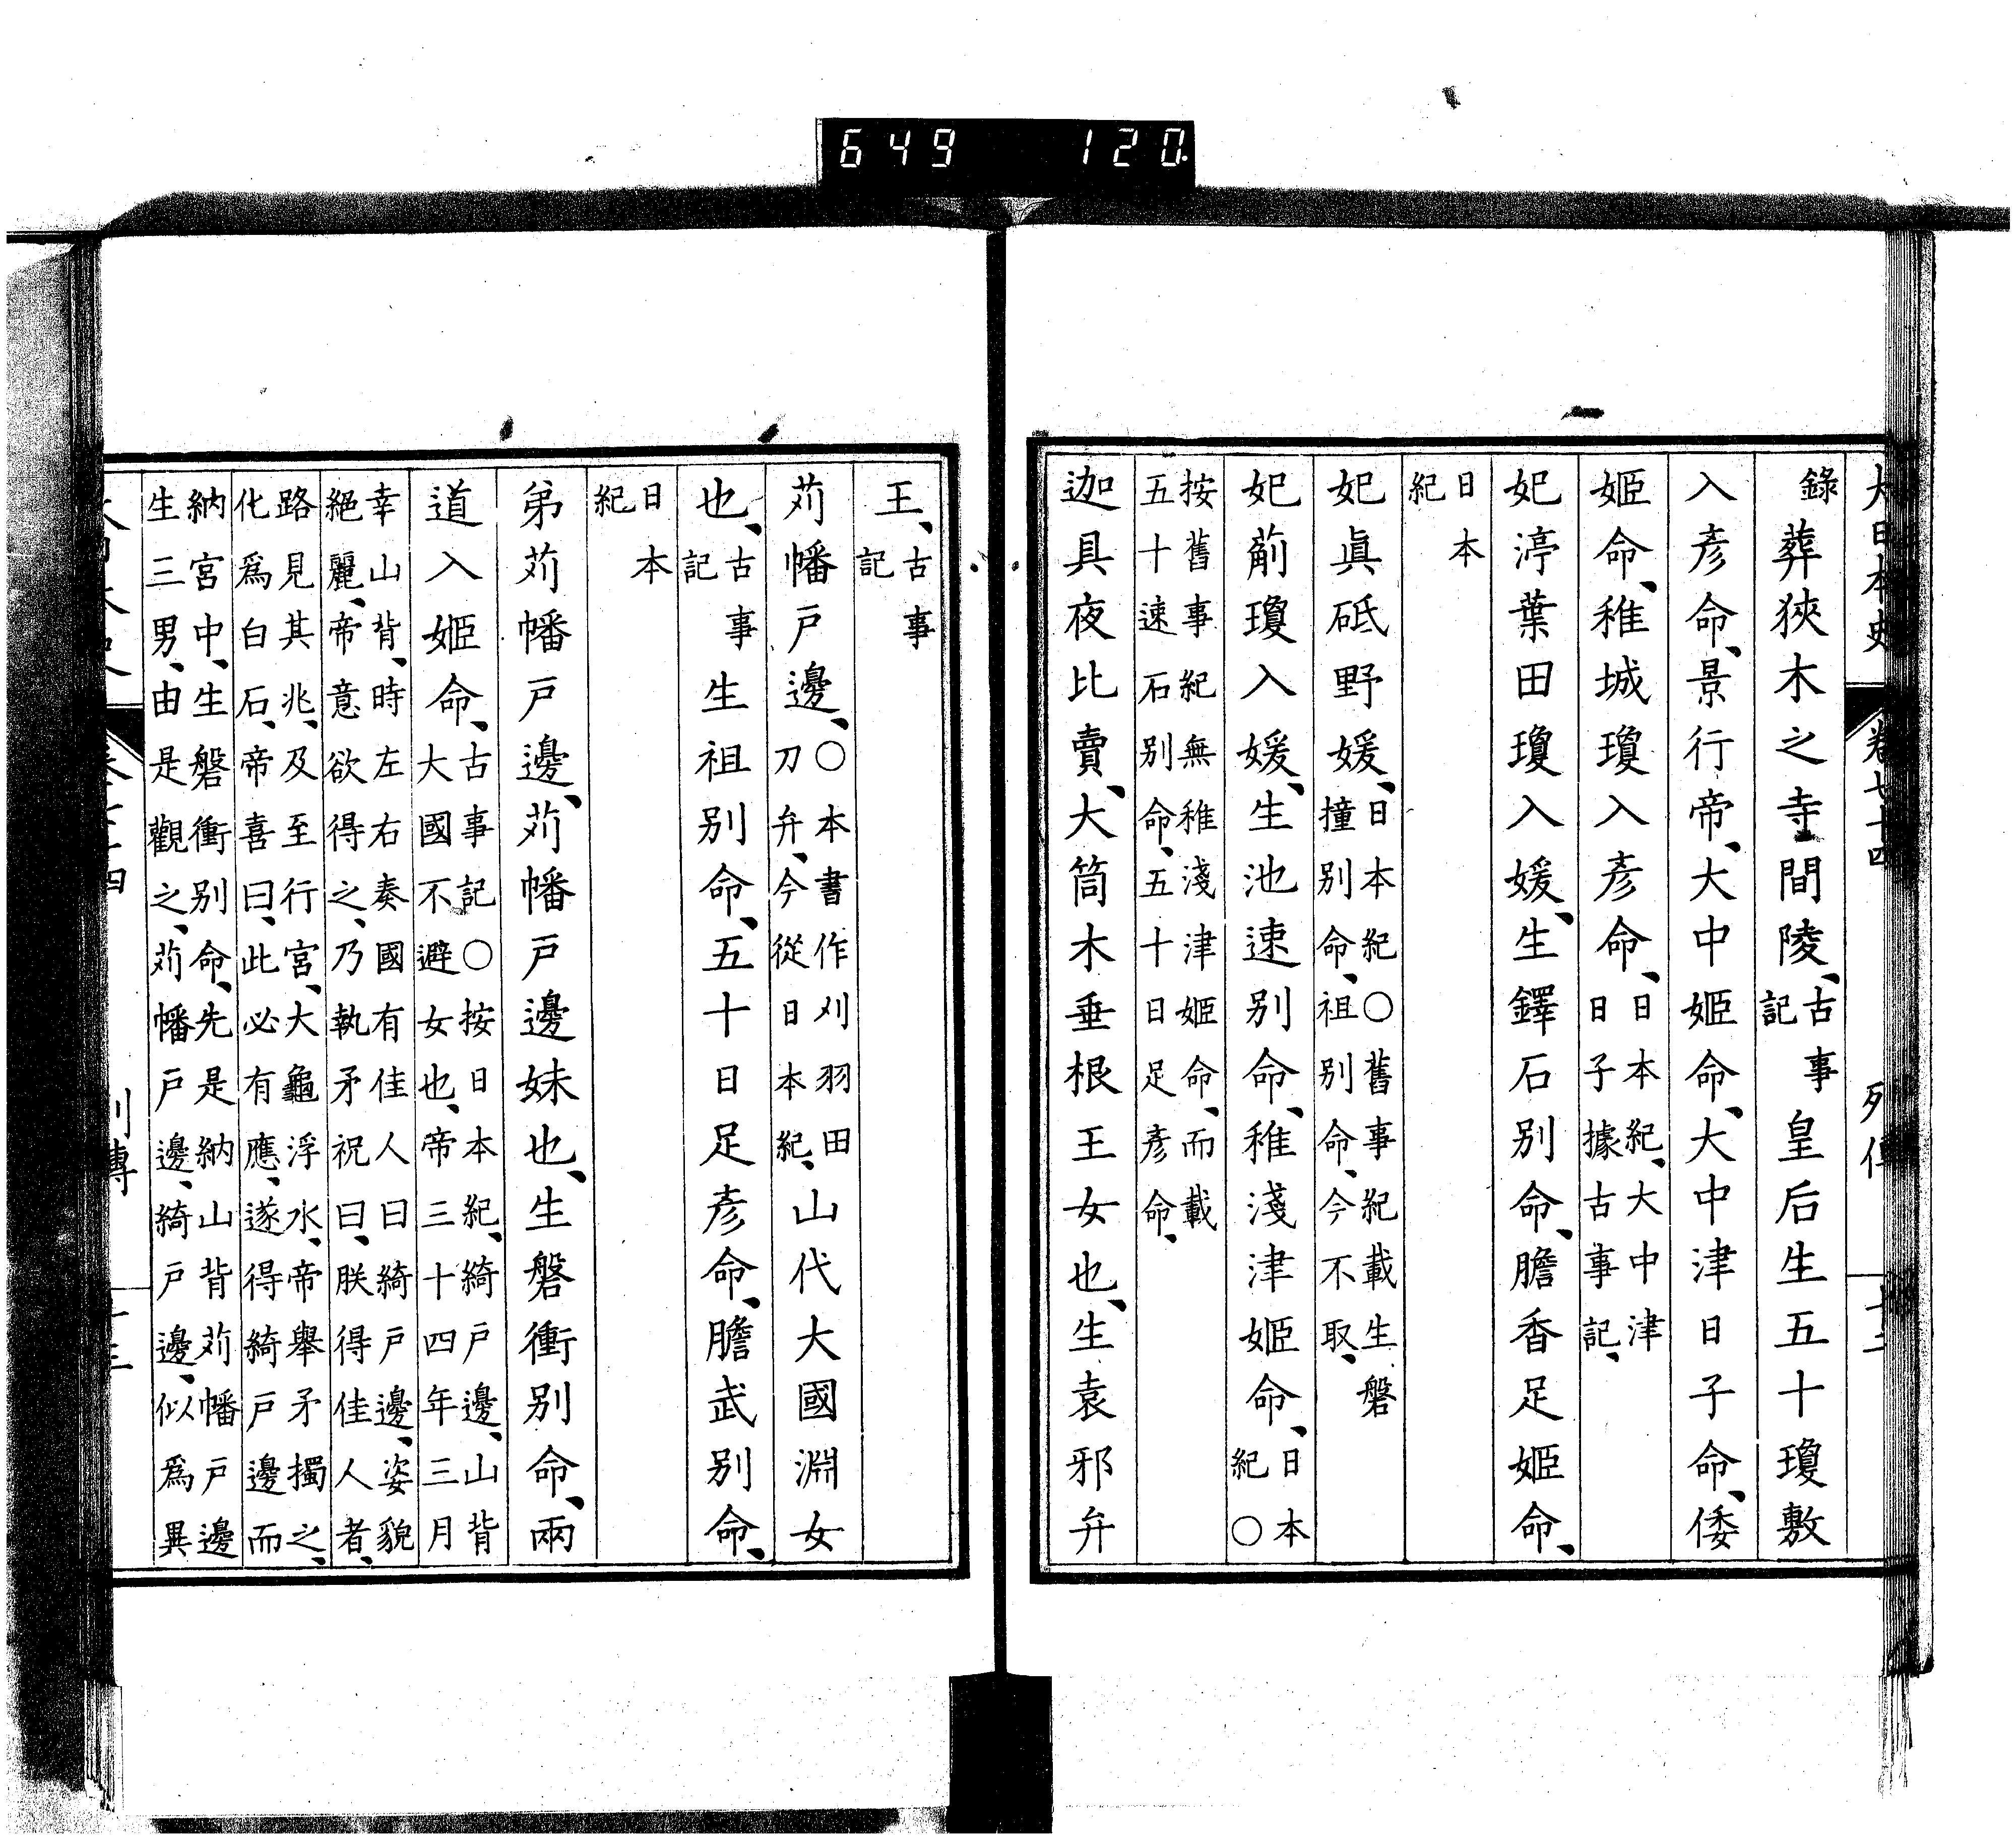 649 120
大日本史 卷七十四 列傳
錄葬狹木之寺間陵、古事記皇后生五十瓊敷
入彥命、景行帝、大中姬命、大中津日子命、倭
姬命、稚城瓊入彥命、日本紀、大中津日子據古事記、
妃渟葉田瓊入媛、生鐸石別命、膽香足姬命、
日本紀
妃眞砥野媛、日本紀○舊事紀載生磐撞別命、祖別命、今不取、
妃薊瓊入媛、生池速別命、稚淺津姬命、日本紀○
按舊事紀無稚淺津姬命、而載五十速石別命、五十日足彥命、
迦具夜比賣、大筒木垂根王女也、生袁邪弁
王、古事記
苅幡戸邊、○本書作刈羽田刀弁、今從日本紀、山代大國淵女
也、古事記生祖別命、五十日足彥命、膽武別命、
日本紀
弟苅幡戸邊、苅幡戸邊妹也、生磐衝別命、兩
道入姬命、古事記○按日本紀、綺戸邊、山背大國不避女也、帝三十四年三月
幸山背、時左右奏國有佳人曰綺戸邊、姿貌絕麗、帝意欲得之、乃執矛祝曰、朕得佳人者、
路見其兆、及至行宮、大龜浮水、帝舉矛擉之、化爲白石、帝喜曰、此必有應、遂得綺戸邊而
納宮中、生磐衝別命、先是納山背苅幡戸邊生三男、由是觀之、苅幡戸邊、綺戸邊、似爲異